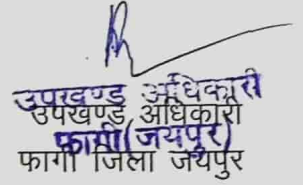 उपखण्ड अधिकारी
उपखण्ड अधिकारी
फागी (जयपुर)
फागी जिला जयपुर